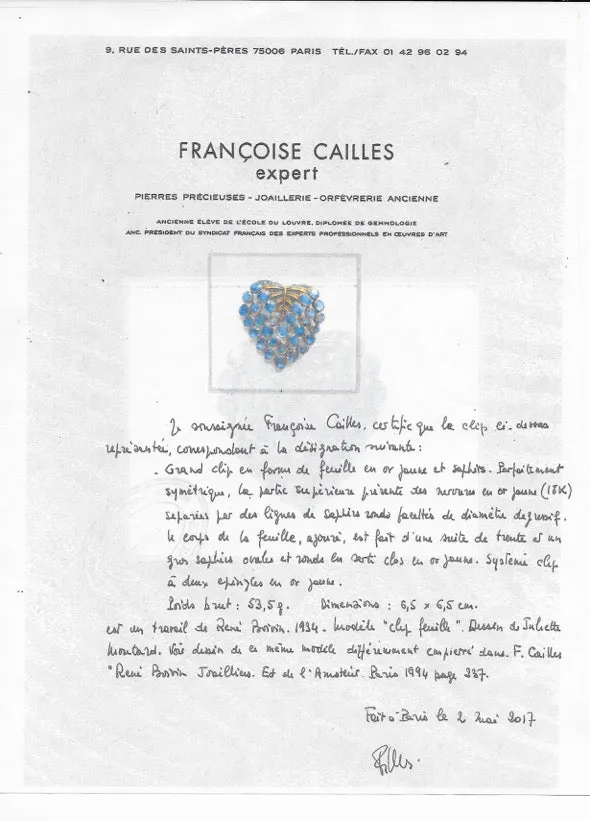 9, RUE DES SAINTS-PÈRES 75006 PARIS TÉL./FAX 01 42 96 02 94
FRANÇOISE CAILLES
expert
PIERRES PRÉCIEUSES - JOAILLERIE - ORFÈVRERIE ANCIENNE
ANCIENNE ÉLÈVE DE L'ÉCOLE DU LOUVRE, DIPLOMÉE DE GEMMOLOGIE
ANC. PRÉSIDENT DU SYNDICAT FRANÇAIS DES EXPERTS PROFESSIONNELS EN ŒUVRES D'ART
Je soussignée Françoise Cailles, certifie que le clip ci-dessus
représenté, correspondant à la désignation suivante :
- Grand clip en forme de feuille en or jaune et saphirs. Parfaitement
symétrique, la partie supérieure présente des nervures en or jaune (18K)
séparées par des lignes de saphirs ronds facettés de diamètre dégressif.
Le corps de la feuille, ajouré, est fait d'une suite de trente et un
gros saphirs ovales et ronds en serti clos en or jaune. Système clip
à deux épingles en or jaune.
Poids brut : 53,5g. Dimensions : 6,5 x 6,5 cm.
est un travail de René Boivin. 1934. Modèle "clip feuille". Dessin de Juliette
Moutard. Voir dessin de ce même modèle différemment empierré dans. F. Cailles
"René Boivin Joaillier. Ed de l'Amateur. Paris 1994 page 237.
Fait à Paris le 2 mai 2017